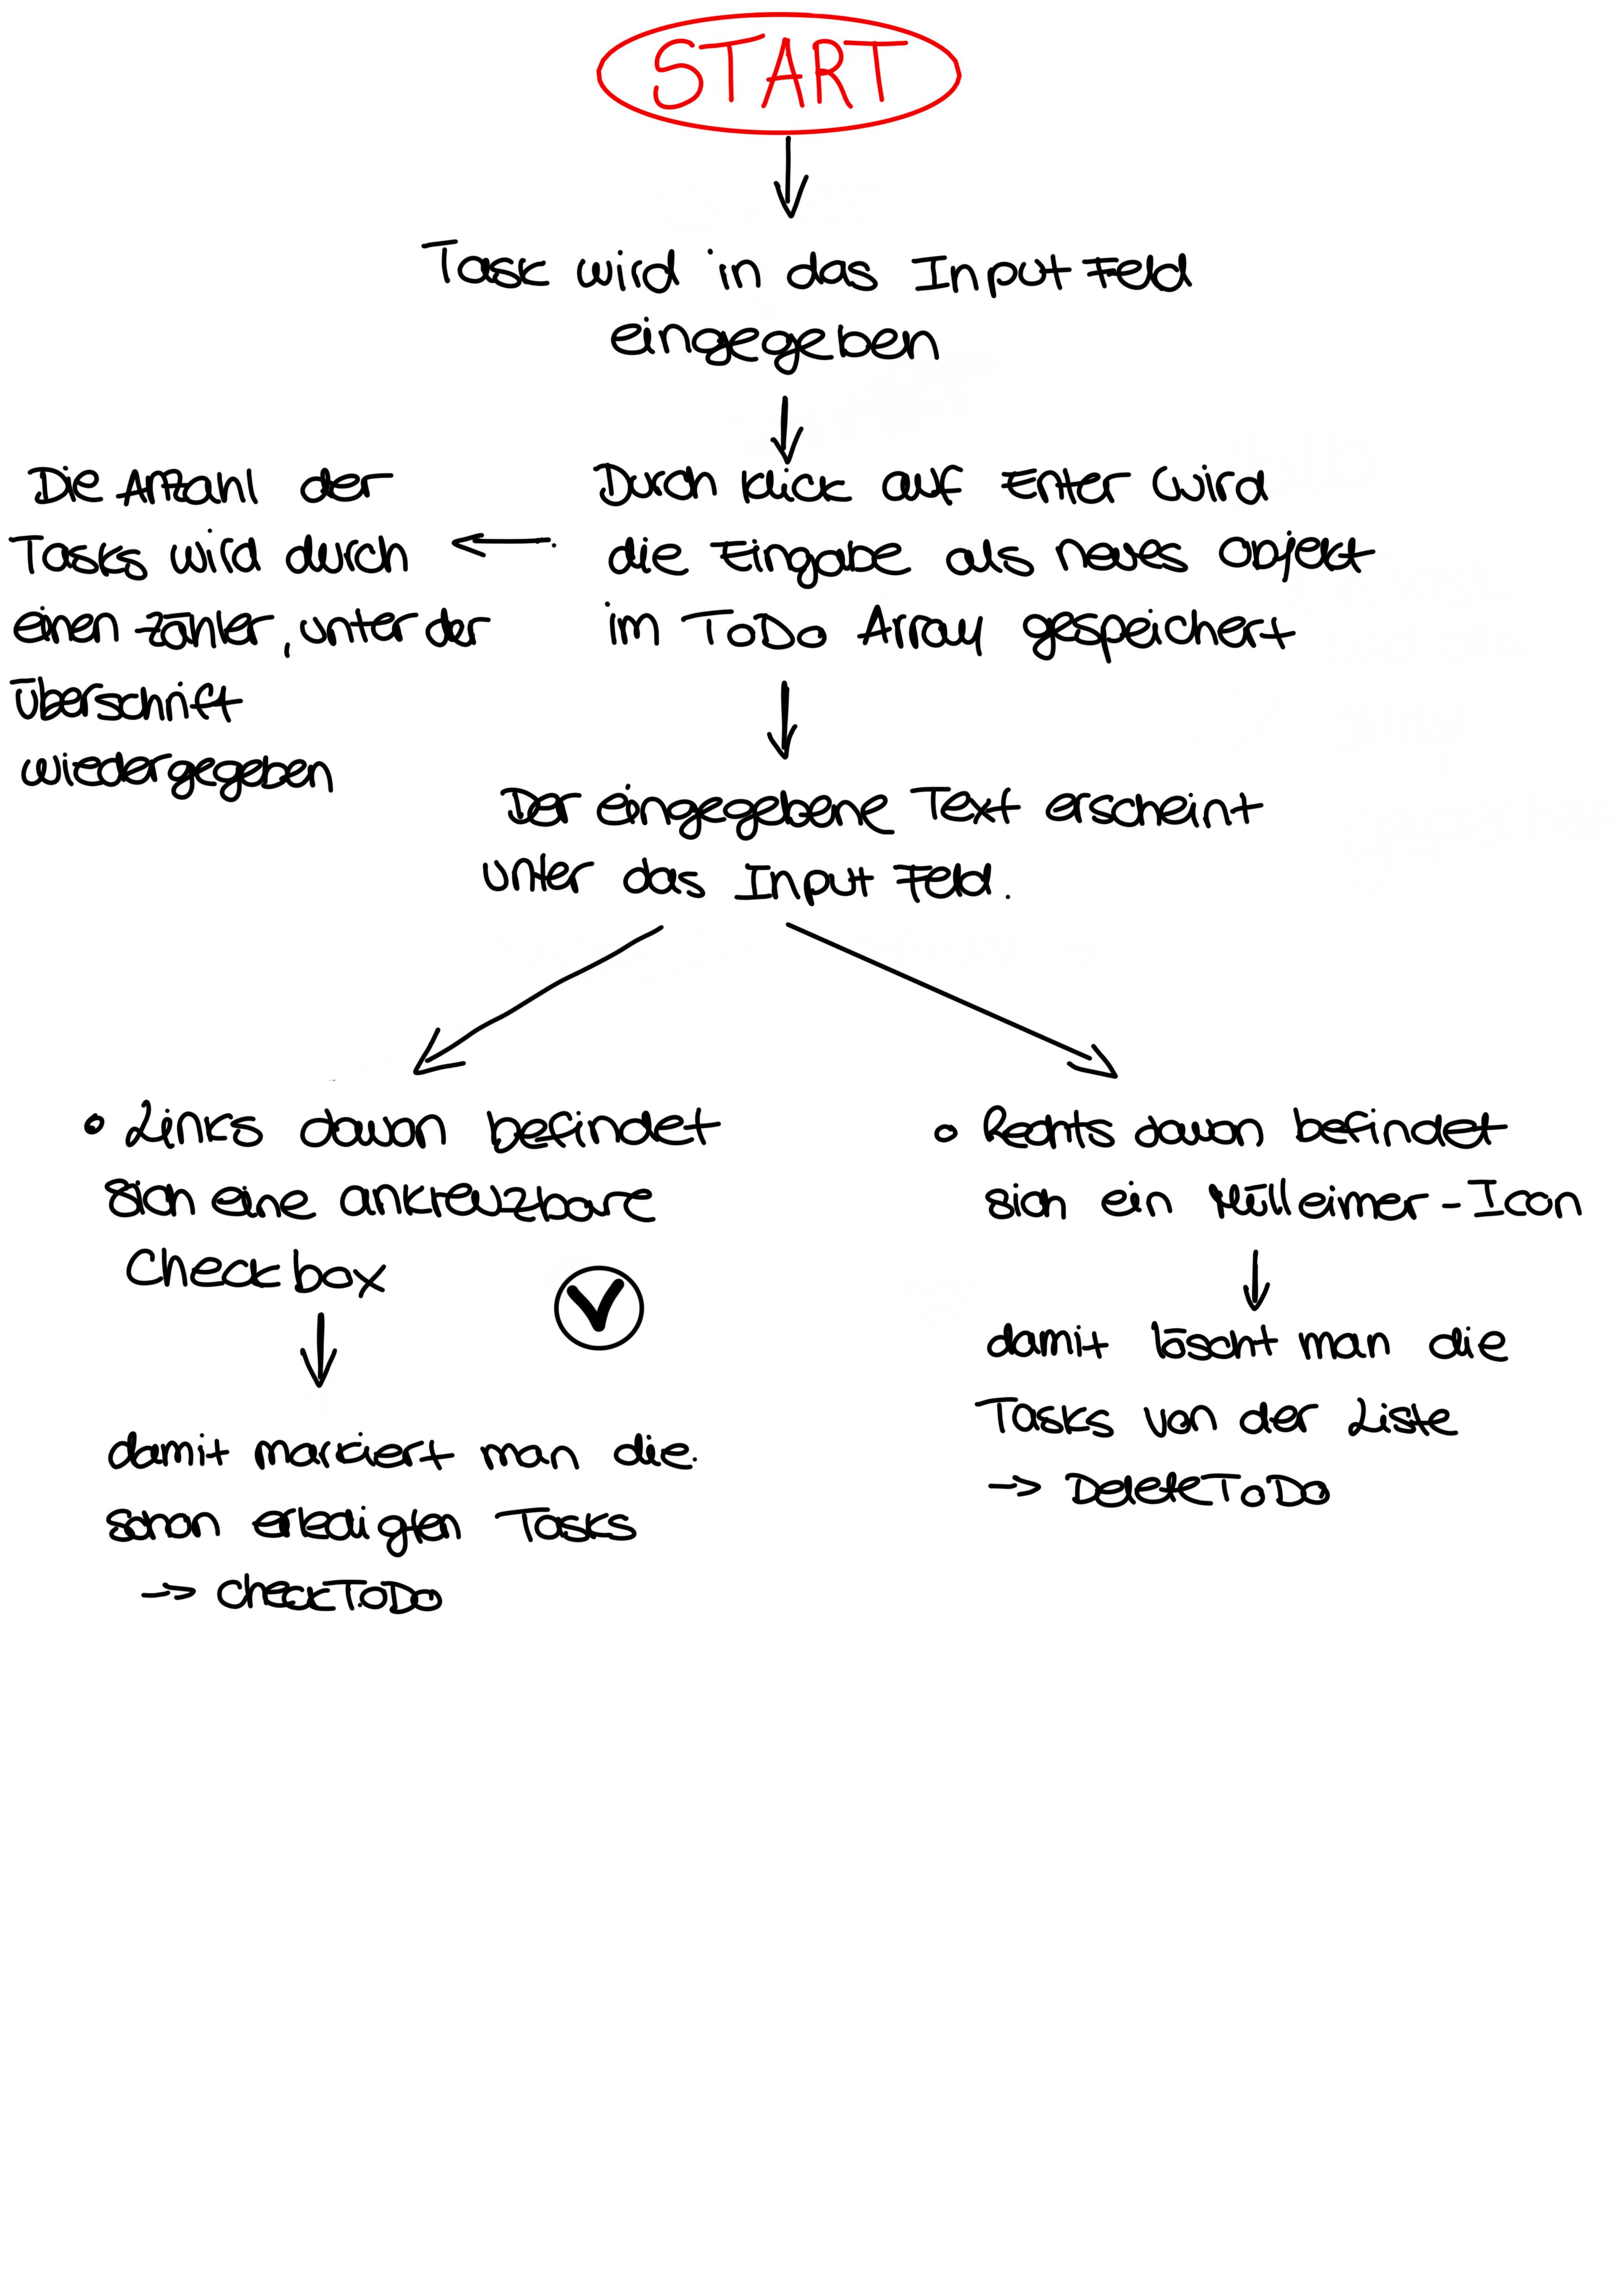 START
Task wird in das Input Feld
eingegeben
Durch klick auf Enter wird
die Eingabe als neues Objekt
im ToDo Array gespeichert
Die Anzahl der
Tasks wird durch
einen Zähler, unter der
Überschrift
wiedergegeben
Der eingegebene Text erscheint
unter das Input Feld.
• Links davon befindet
sich eine ankreuzbare
Checkbox
damit markiert man die
schon erledigten Tasks
→ CheckToDo
• Rechts davon befindet
sich ein Mülleimer-Icon
damit löscht man die
Tasks von der Liste
→ DeleteToDo